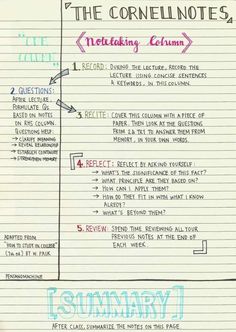 THE CORNELLNOTES
CUE
COLUMN
Notetaking Column
1. RECORD: DURING THE LECTURE, RECORD THE
LECTURE USING CONCISE SENTENCES
& KEYWORDS, IN THIS COLUMN.
2. QUESTIONS:
AFTER LECTURE,
FORMULATE QS
BASED ON NOTES
ON RHS COLUMN.
QUESTIONS HELP:
→ CLARIFY MEANING
→ REVEAL RELATIONSHIP
→ ESTABLISH CONTINUITY
→ STRENGTHEN MEMORY
3. RECITE: COVER THIS COLUMN WITH A PIECE OF
PAPER. THEN LOOK AT THE QUESTIONS
FROM 2 & TRY TO ANSWER THEM FROM
MEMORY, IN YOUR OWN WORDS.
4. REFLECT: REFLECT BY ASKING YOURSELF:
→ WHAT'S THE SIGNIFICANCE OF THIS FACT?
→ WHAT PRINCIPLE ARE THEY BASED ON?
→ HOW CAN I APPLY THEM?
→ HOW DO THEY FIT IN WITH WHAT I KNOW
ALREADY?
→ WHAT'S BEYOND THEM?
5. REVIEW: SPEND TIME REVIEWING ALL YOUR
PREVIOUS NOTES AT THE END OF
EACH WEEK.
ADAPTED FROM
"HOW TO STUDY IN COLLEGE"
BY W. PAUK
[SUMMARY]
AFTER CLASS, SUMMARIZE THE NOTES ON THIS PAGE.